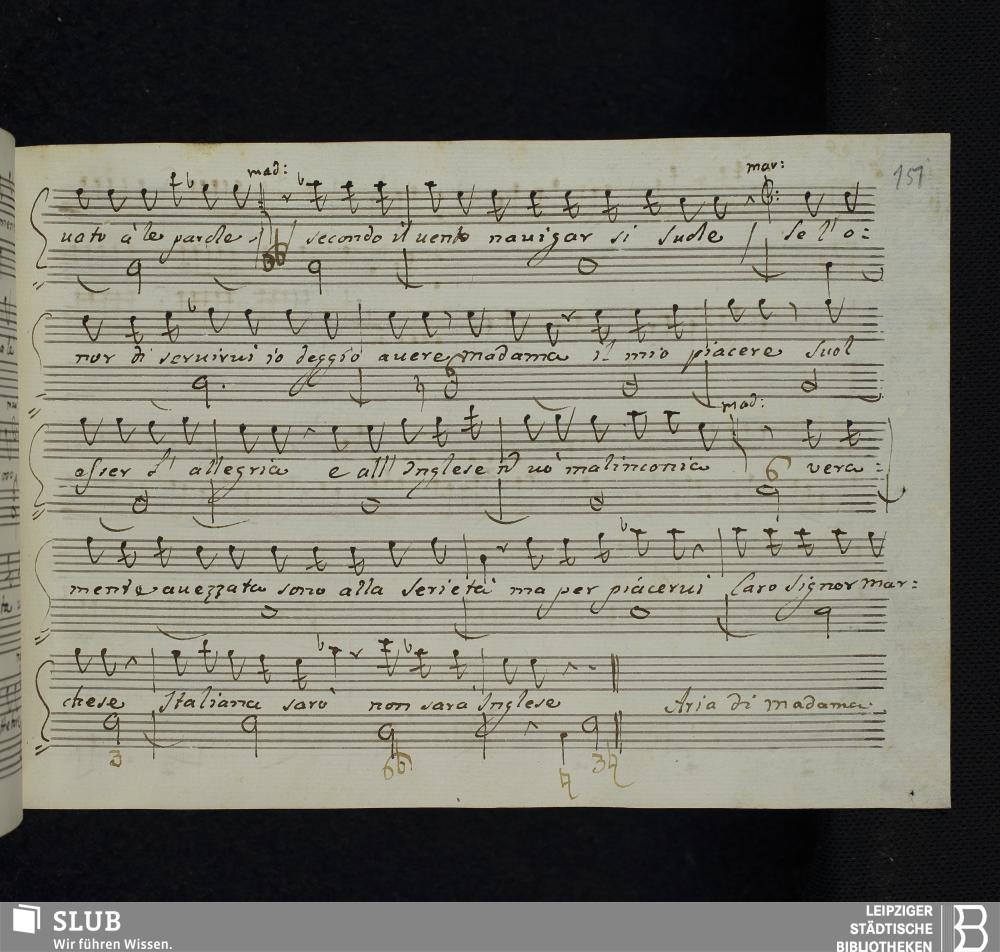 mad: mar: 151
uato à le parole secondo il uento nauigar si suole se l'o:
nor di seruirui io deggio auere madama il mio piacere suol
mad:
esser l'allegria e all'Inglese uò malinconia vera:
6
mente auezzata sono alla serietà ma per piacerui Caro Signor Mar:
chese Italiana sarò non sara Inglese Aria di madama
3 6b 3
SLUB
Wir führen Wissen.
LEIPZIGER
STÄDTISCHE
BIBLIOTHEKEN